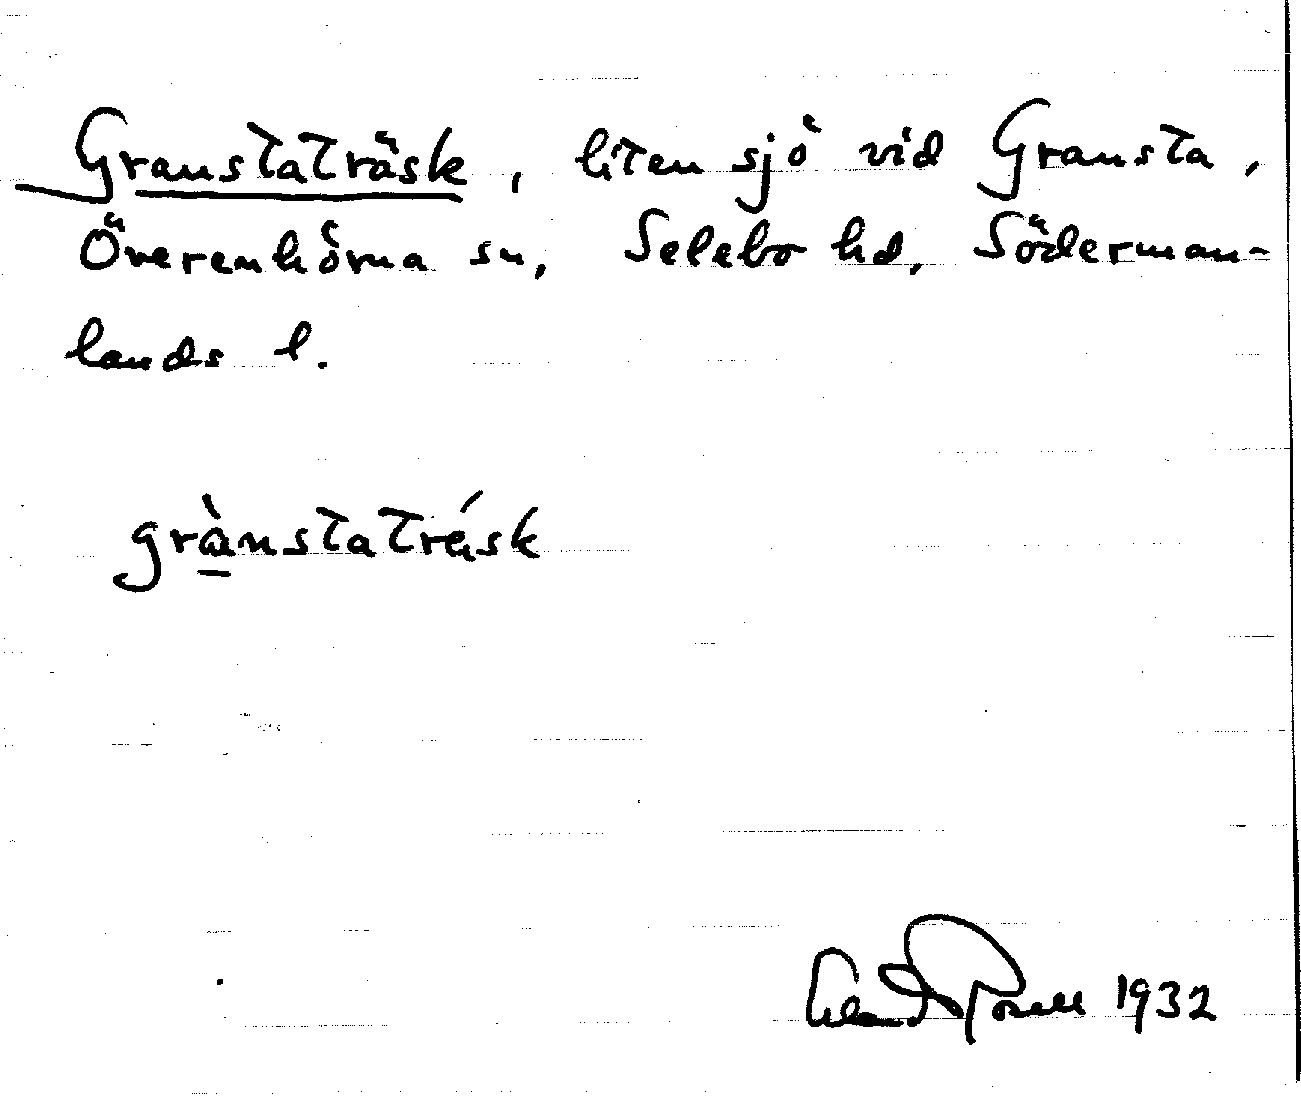 Granstaträsk, liten sjö vid Gransta,
Överenhörna sn, Selebo hd, Söderman-
lands l.
grànstaträsk
1932